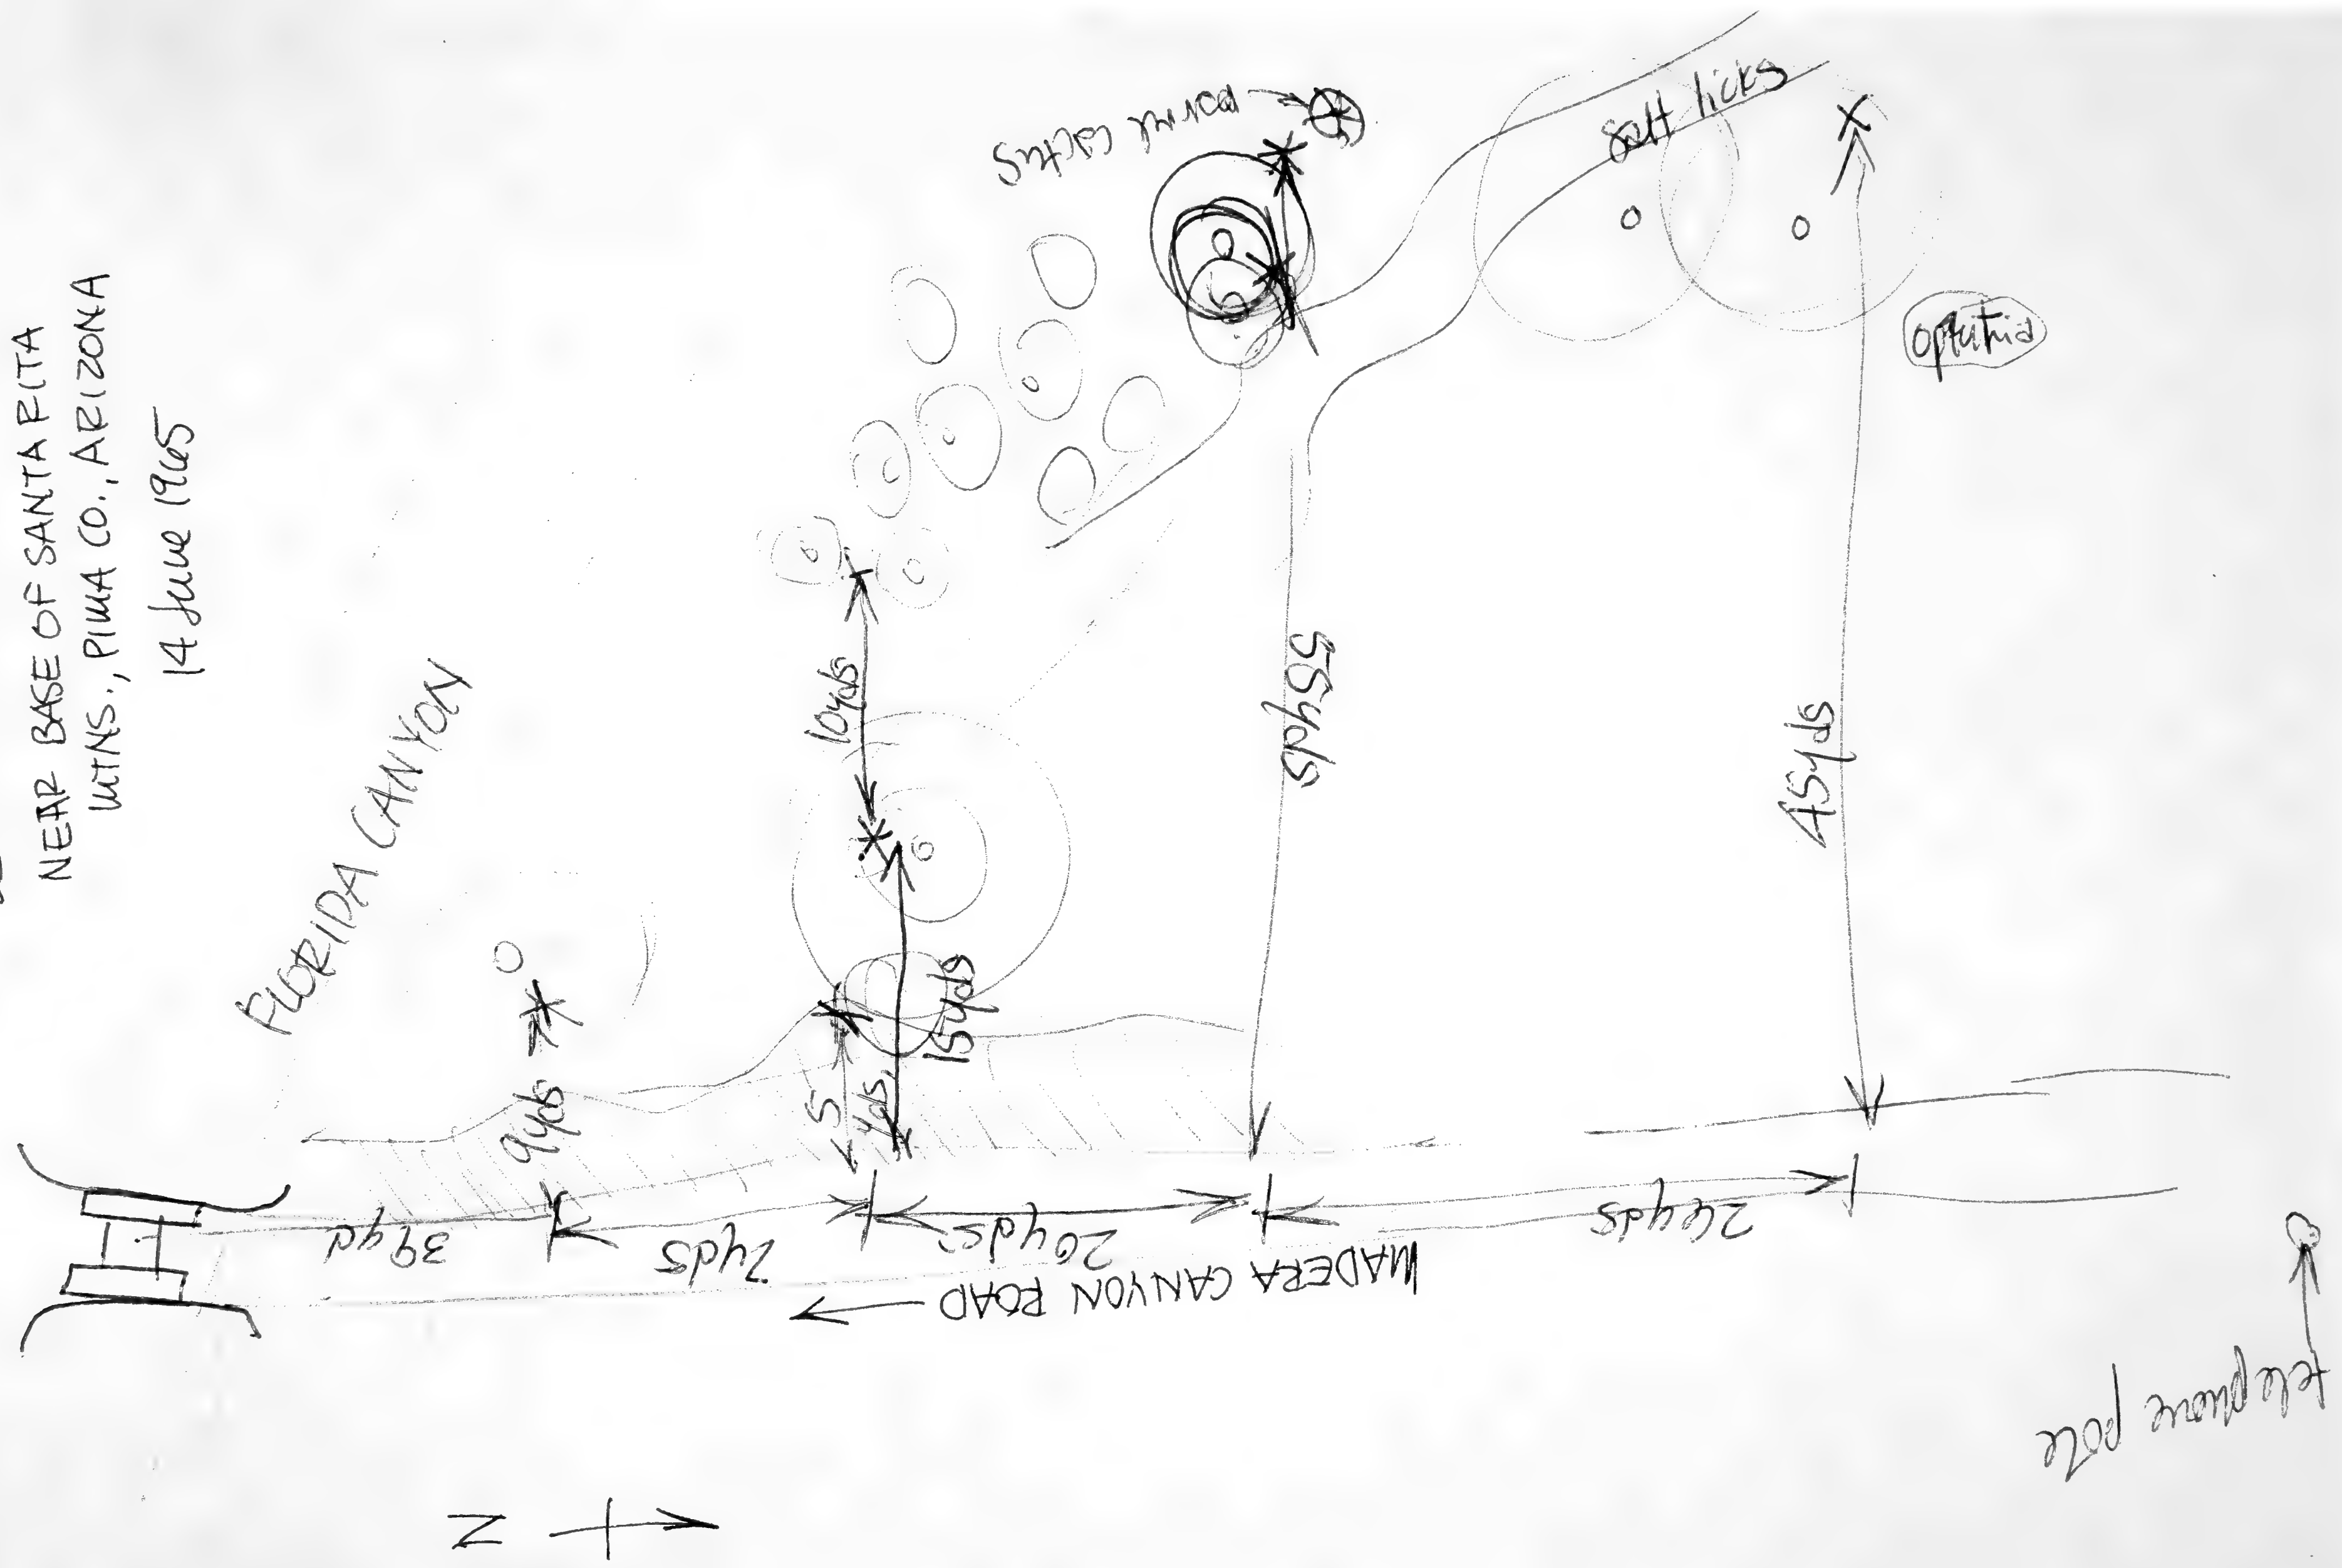 NEAR BASE OF SANTA RITA
MTNS., PIMA CO., ARIZONA
14 June 1965
FLORIDA CANYON
barrel cactus
salt licks
opuntia
10yds
55yds
45yds
15yds
5
yds.
9yds
39yd
7yds
20yds
26yds
MADERA CANYON ROAD
telephone pole
N